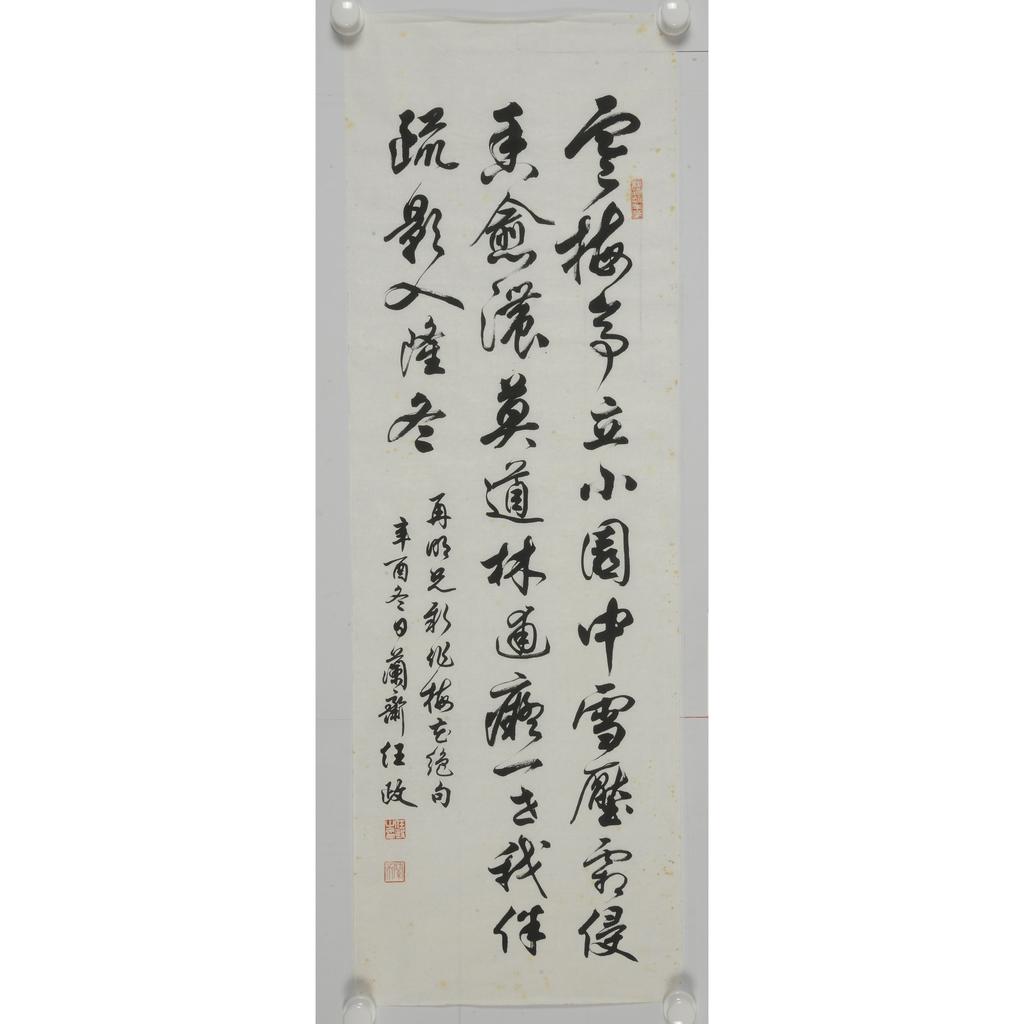 雲梅亭立小園中雪壓霜侵
香愈濃莫道林逋癡一世我伴
疏影入隆冬
再明兄新作梅花絕句
辛酉冬日蘭齋任政